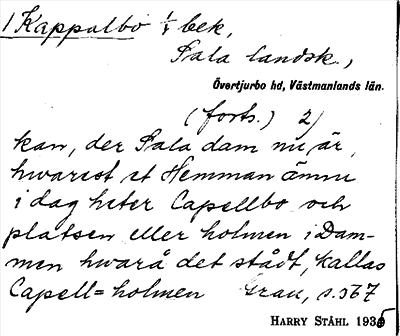 1 Kappalbo 1/4 bek,
Sala landsk.,
Övertjurbo hd, Västmanlands län.
(forts.) 2)
kan, der Sala dam nu är,
hwarest et Hemman ännu
i dag heter Capellbo och
platsen eller holmen i Dam-
men hwarå det stådt, kallas
Capell=holmen Grau, s. 367
HARRY STÅHL 1935